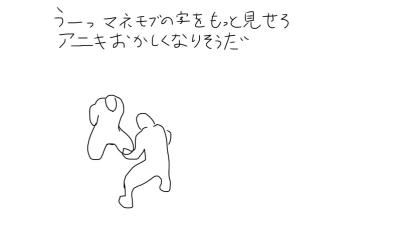 うーっ マネモブの字をもっと見せろ
アニキおかしくなりそうだ